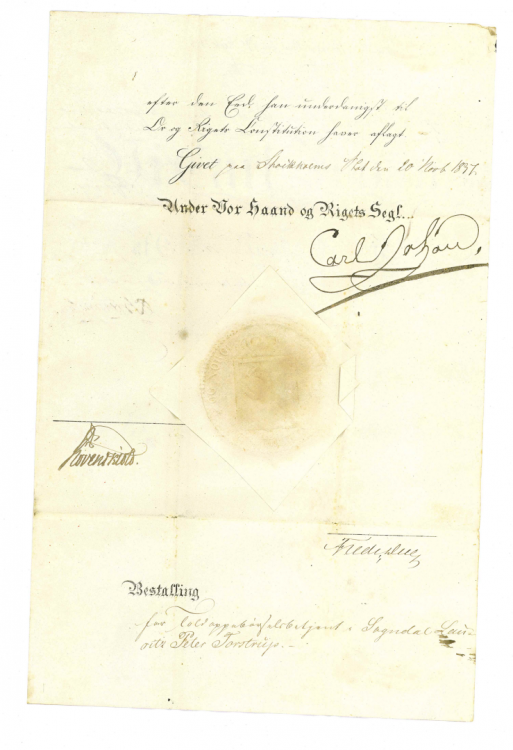 efter den Eed han underdanigst til
Os og Rigets Constitution haver aflagt
Givet paa Stockholms Slot den 20 Novb 1837.
Under Vor Haand og Rigets Segl...
Carl Johan.
Løvenskiold.
Fredr. Due
Bestalling
for Toldoppebørselsbetjent i Sogndal Lau-
ritz Peter Torstrup.-